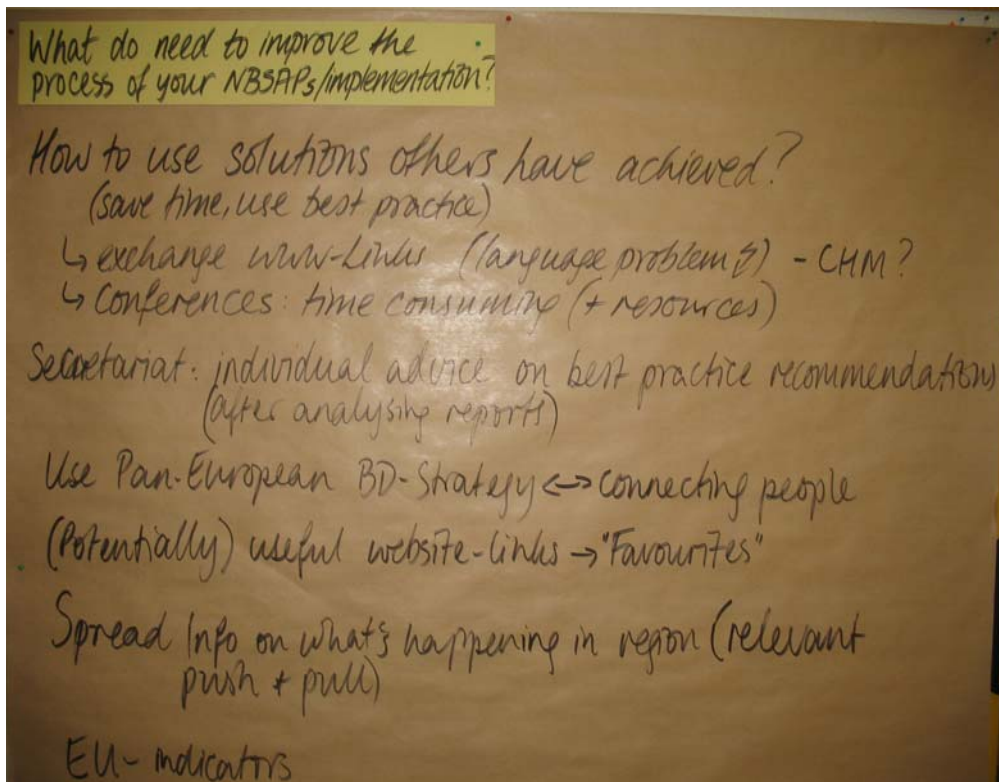 What do need to improve the
process of your NBSAPs/implementation?
How to use solutions others have achieved?
(save time, use best practice)
↳ exchange www-Links (language problem) - CHM?
↳ Conferences: time consuming (+ resources)
Secretariat: individual advice on best practice recommendations
(after analysing reports)
Use Pan-European BD-Strategy ↔ connecting people
(Potentially) useful website-links → "Favourites"
Spread Info on what's happening in region (relevant
push + pull)
EU-indicators